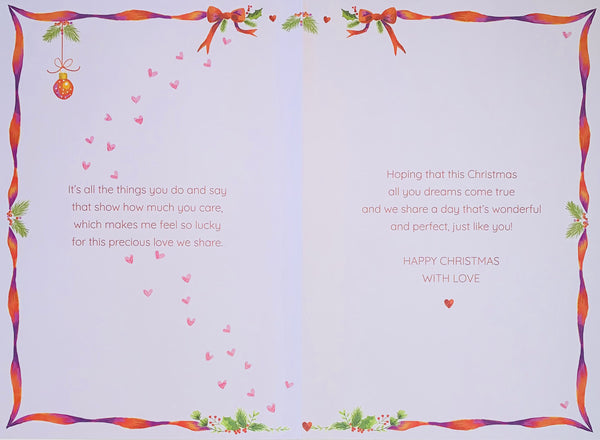 It's all the things you do and say
that show how much you care,
which makes me feel so lucky
for this precious love we share.
Hoping that this Christmas
all you dreams come true
and we share a day that's wonderful
and perfect, just like you!
HAPPY CHRISTMAS
WITH LOVE